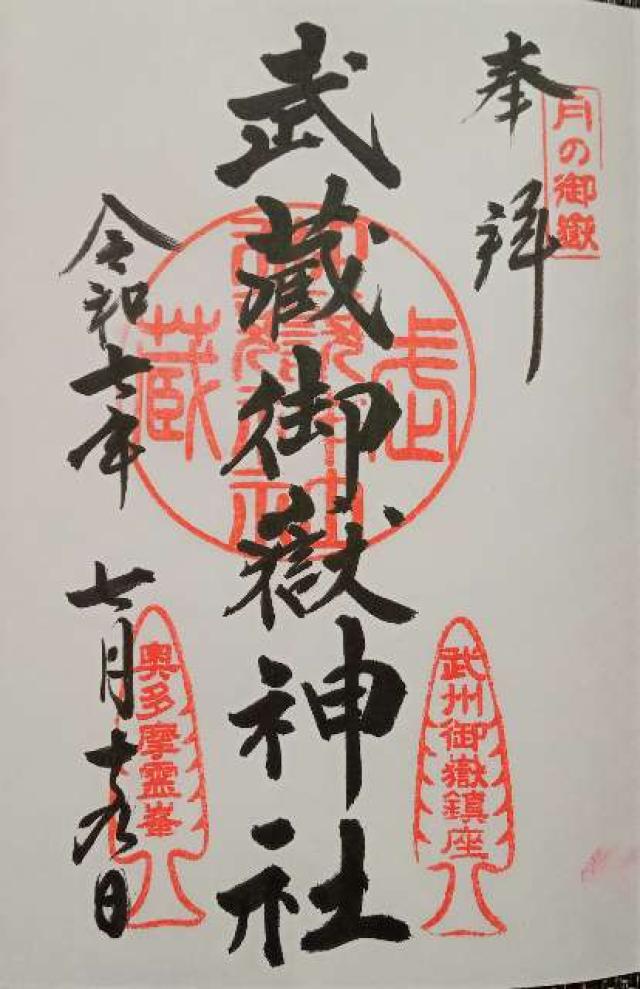 奉拝
月の御嶽
武蔵御嶽神社
武蔵
御嶽神社
武州御嶽鎮座
令和七年七月十九日
奥多摩霊峯